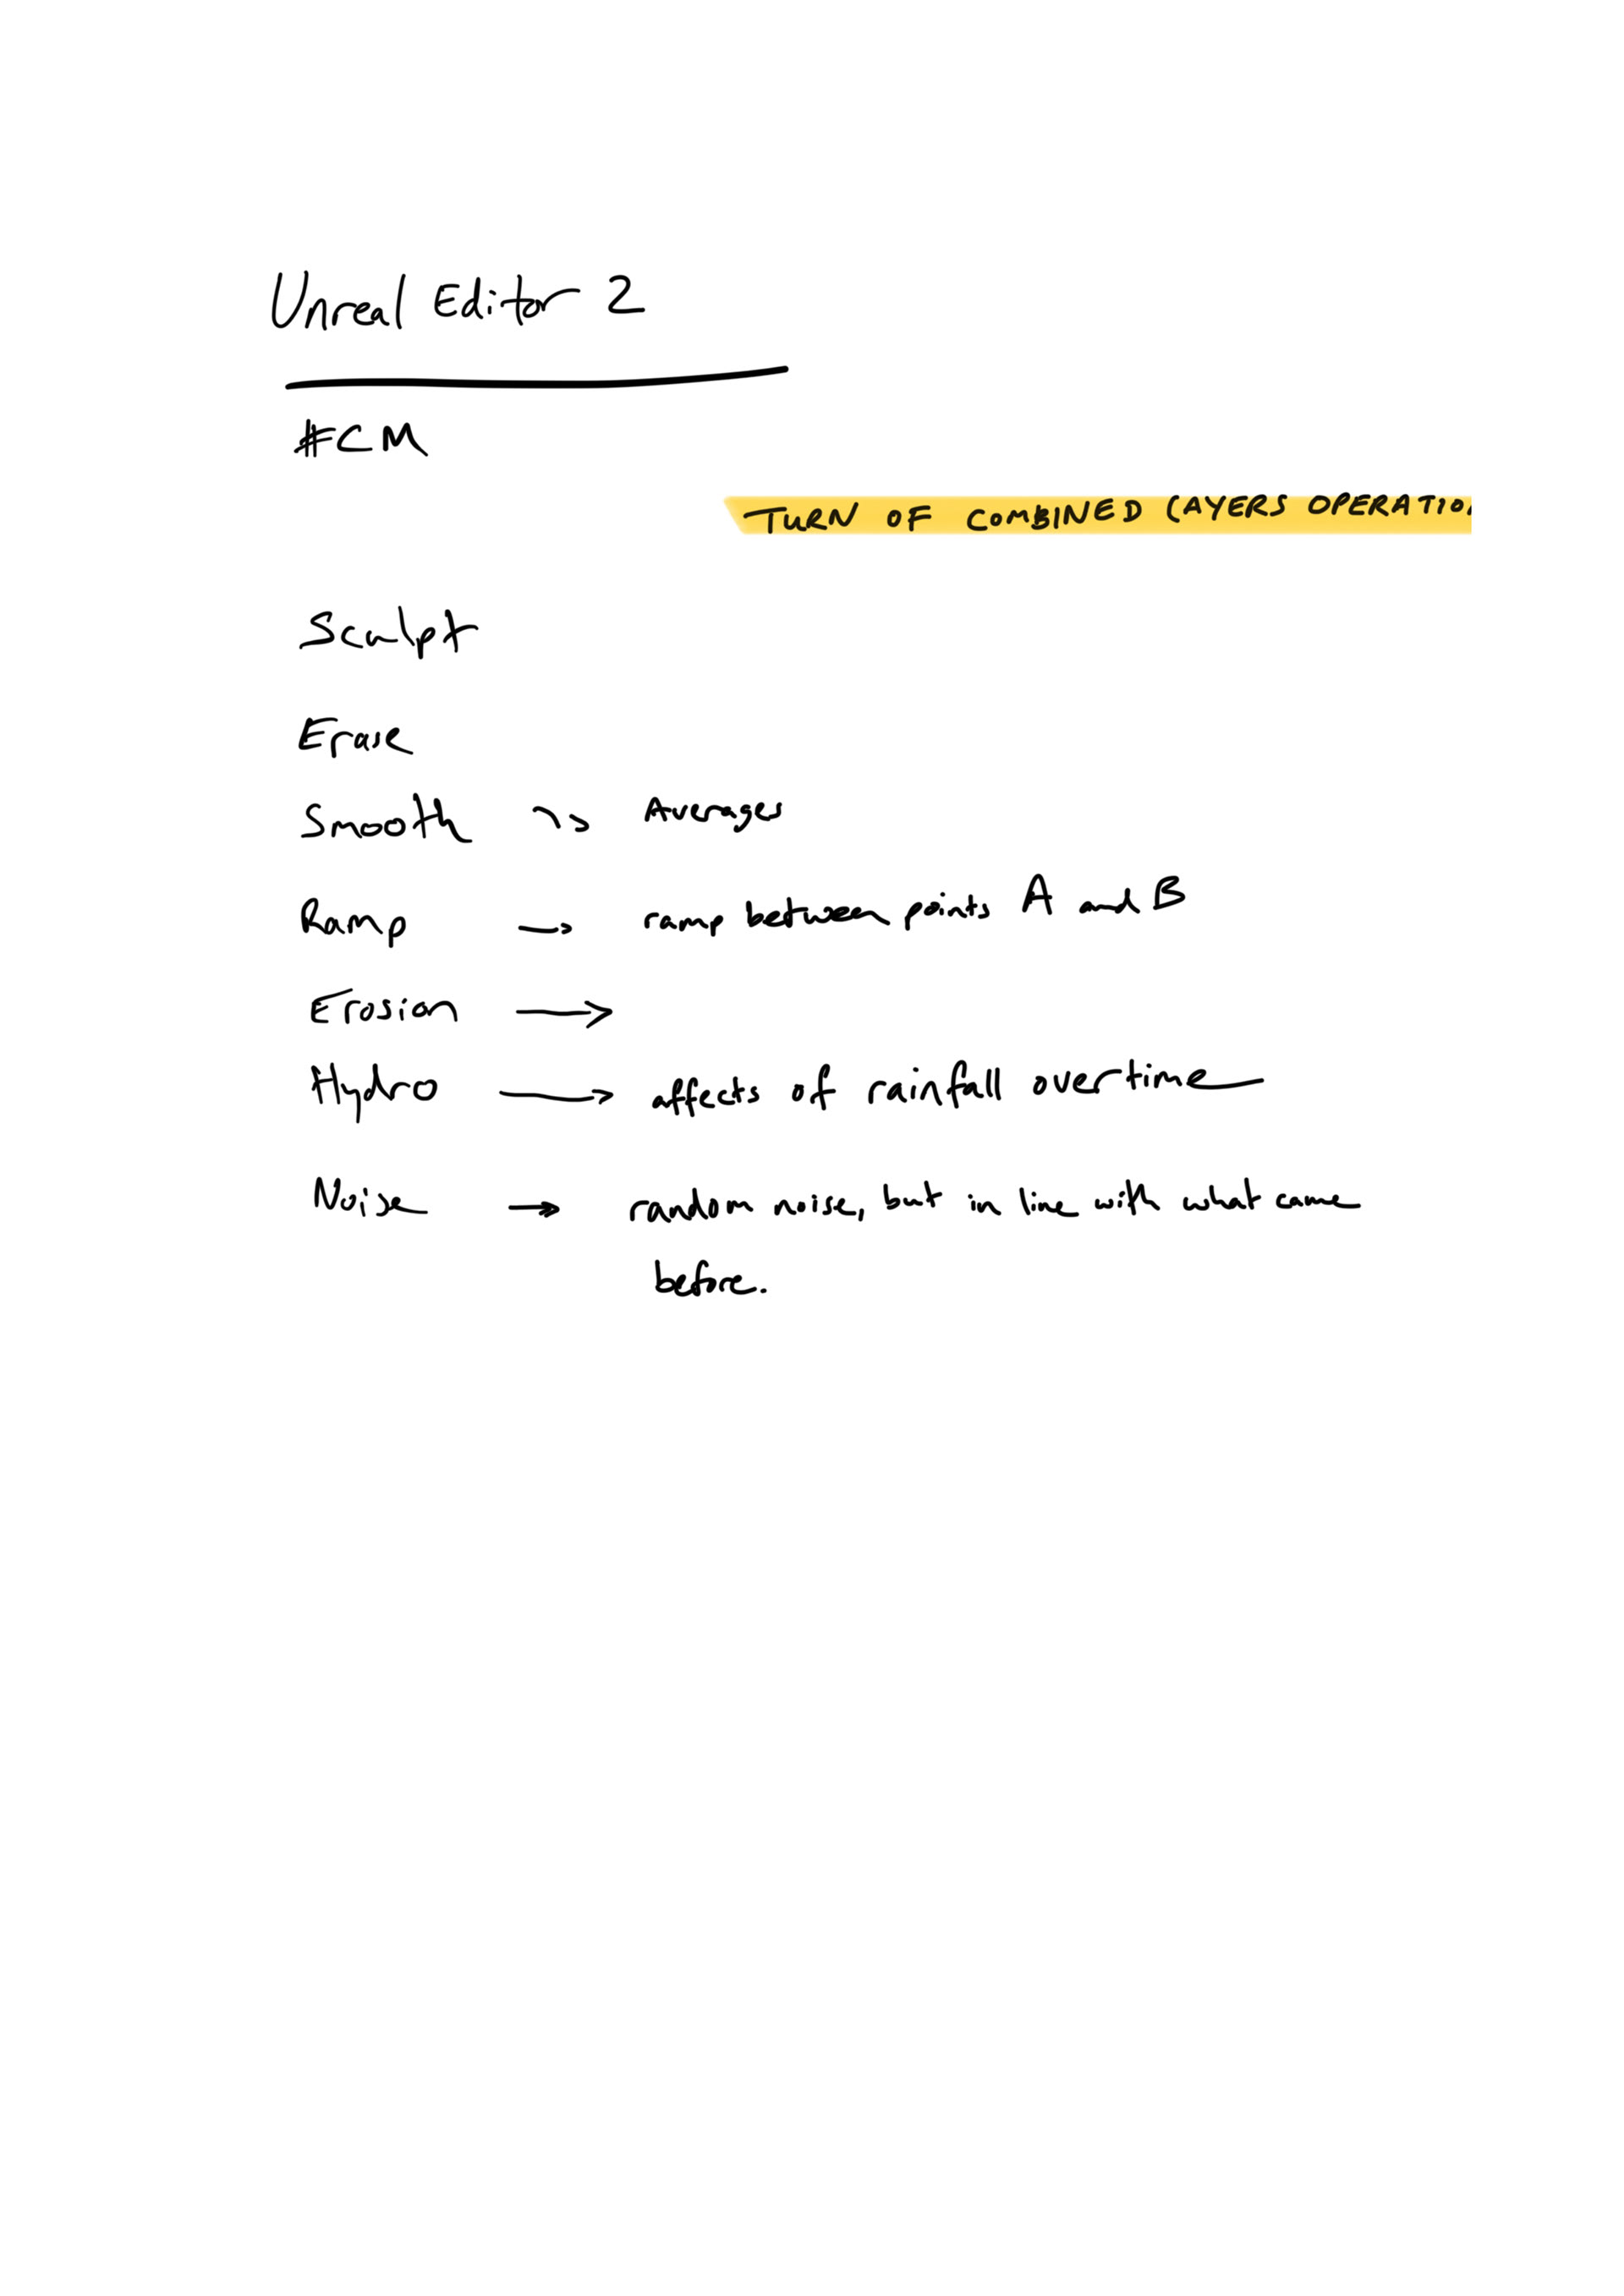 Unreal Editor 2
#CM
TURN OF COMBINED LAYERS OPERATION
Sculpt
Erase
Smooth → Averages
Ramp → ramp between points A and B
Erosion →
Hydro → affects of rainfall overtime
Noise → random noise, but in line with what came
before.